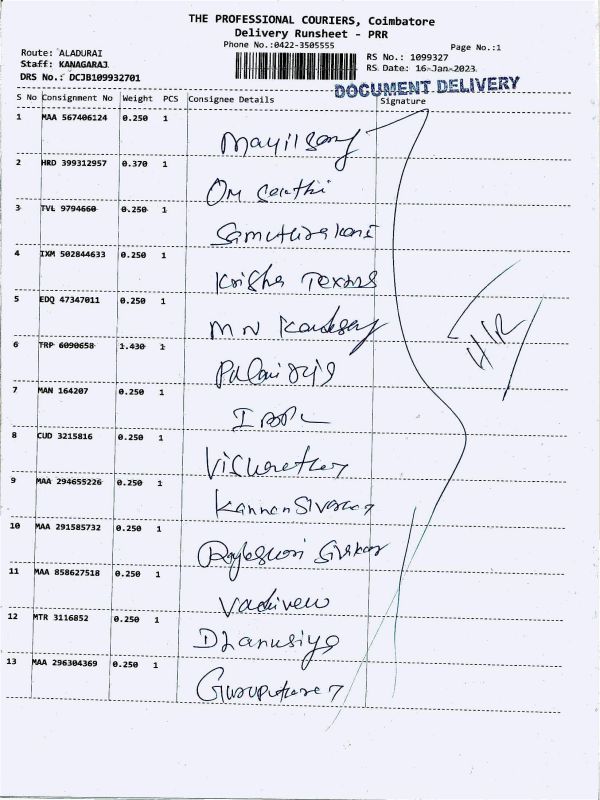 THE PROFESSIONAL COURIERS, Coimbatore
Delivery Runsheet - PRR
Phone No.:0422-3505555
Page No.:1
Route: ALADURAI
Staff: KANAGARAJ
DRS No.: DCJB109932701
RS No.: 1099327
RS Date: 16-Jan-2023
DOCUMENT DELIVERY
S No Consignment No Weight PCS Consignee Details Signature
1 MAA 567406124 0.250 1
2 HRD 399312957 0.370 1
Om Santhi
3 TVL 9794660 0.250 1
4 IXM 502844633 0.250 1
Krisha Texms
5 EDQ 47347011 0.250 1
M N
6 TRP 6090658 1.430 1
Palani
7 MAN 164207 0.250 1
8 CUD 3215816 0.250 1
9 MAA 294655226 0.250 1
10 MAA 291585732 0.250 1
11 MAA 858627518 0.250 1
Vadivelu
12 MTR 3116852 0.250 1
Dhanusiya
13 MAA 296304369 0.250 1